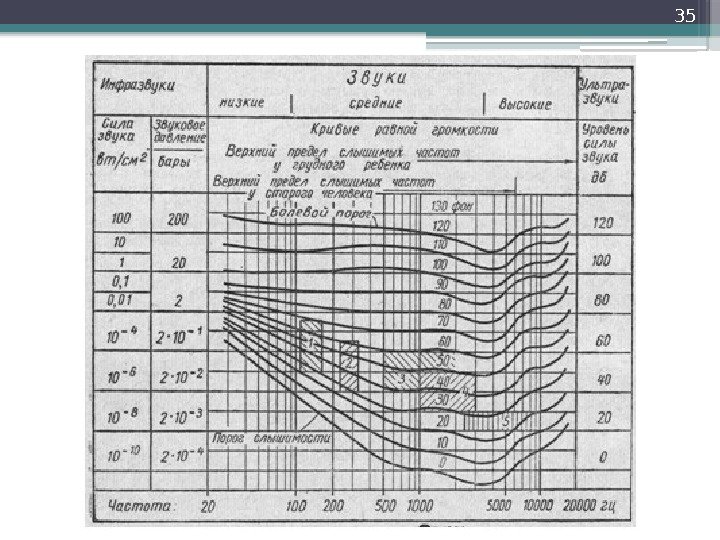 35
Инфразвуки
Звуки
Ультра-
звуки
низкие
средние
высокие
Сила
звука
вт/см²
Звуковое
давление
бары
Кривые равной громкости
Уровень
силы
звука
дБ
Верхний предел слышимых частот
у грудного ребенка
Верхний предел слышимых частот
у старого человека
130 фон
Болевой порог
100 200 120 120
10 110
1 20 100 100
0,1 90
0,01 2 80 80
70
10⁻⁴ 2·10⁻¹ 60 60
1 2
50
10⁻⁶ 2·10⁻² 3 40 4 40
30
10⁻⁸ 2·10⁻³ 20 5 20
Порог слышимости
10
10⁻¹⁰ 2·10⁻⁴ 0 0
Частота: 20 100 200 500 1000 5000 10000 20000 гц